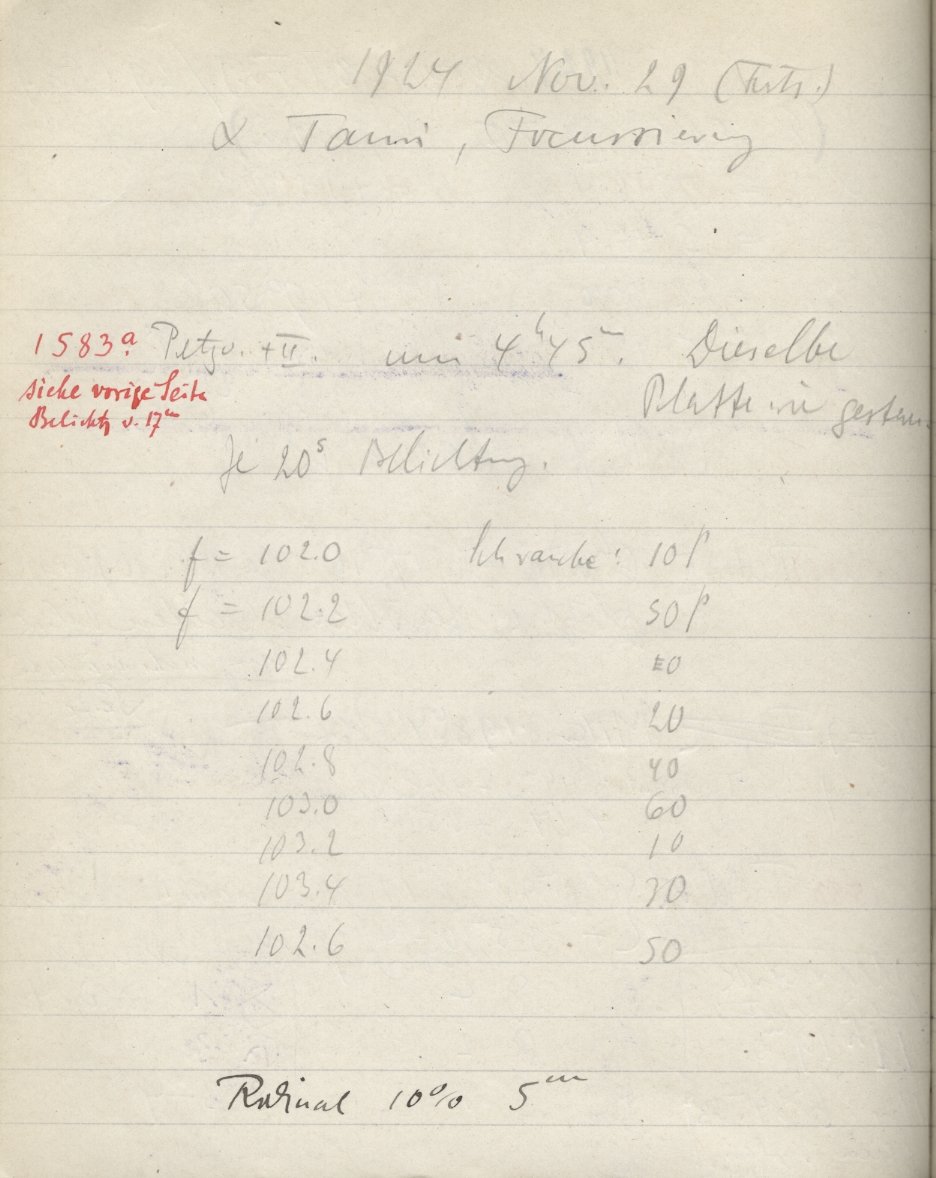 1924 Nov. 29 (Forts.)
α Tauri, Focussierung
1583a. Petzv. + II. um 4h45m. Dieselbe
siehe vorige Seite
Platte wie gestern.
Belichtg v. 17m
Je 20s Belichtung.
f = 102.0 Schraube: 10p
f = 102.2 50p
102.4 0
102.6 20
102.8 40
103.0 60
103.2 10
103.4 30
102.6 50
Rodinal 10% 5m